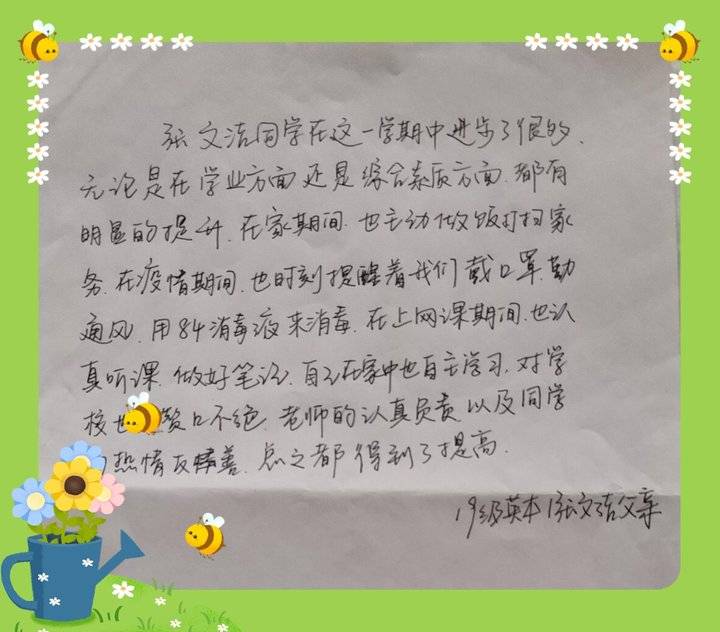 张文洁同学在这一学期中进步了很的、
无论是在学业方面还是综合素质方面.都有
明显的提升.在家期间.也主动做饭打扫家
务.在疫情期间.也时刻提醒着我们戴口罩.勤
通风.用84消毒液来消毒.在上网课期间.也认
真听课.做好笔记.自己在家中也自主学习.对学
校也赞口不绝.老师的认真负责以及同学
热情友善.总之都得到了提高.
19级英本1张文洁父亲